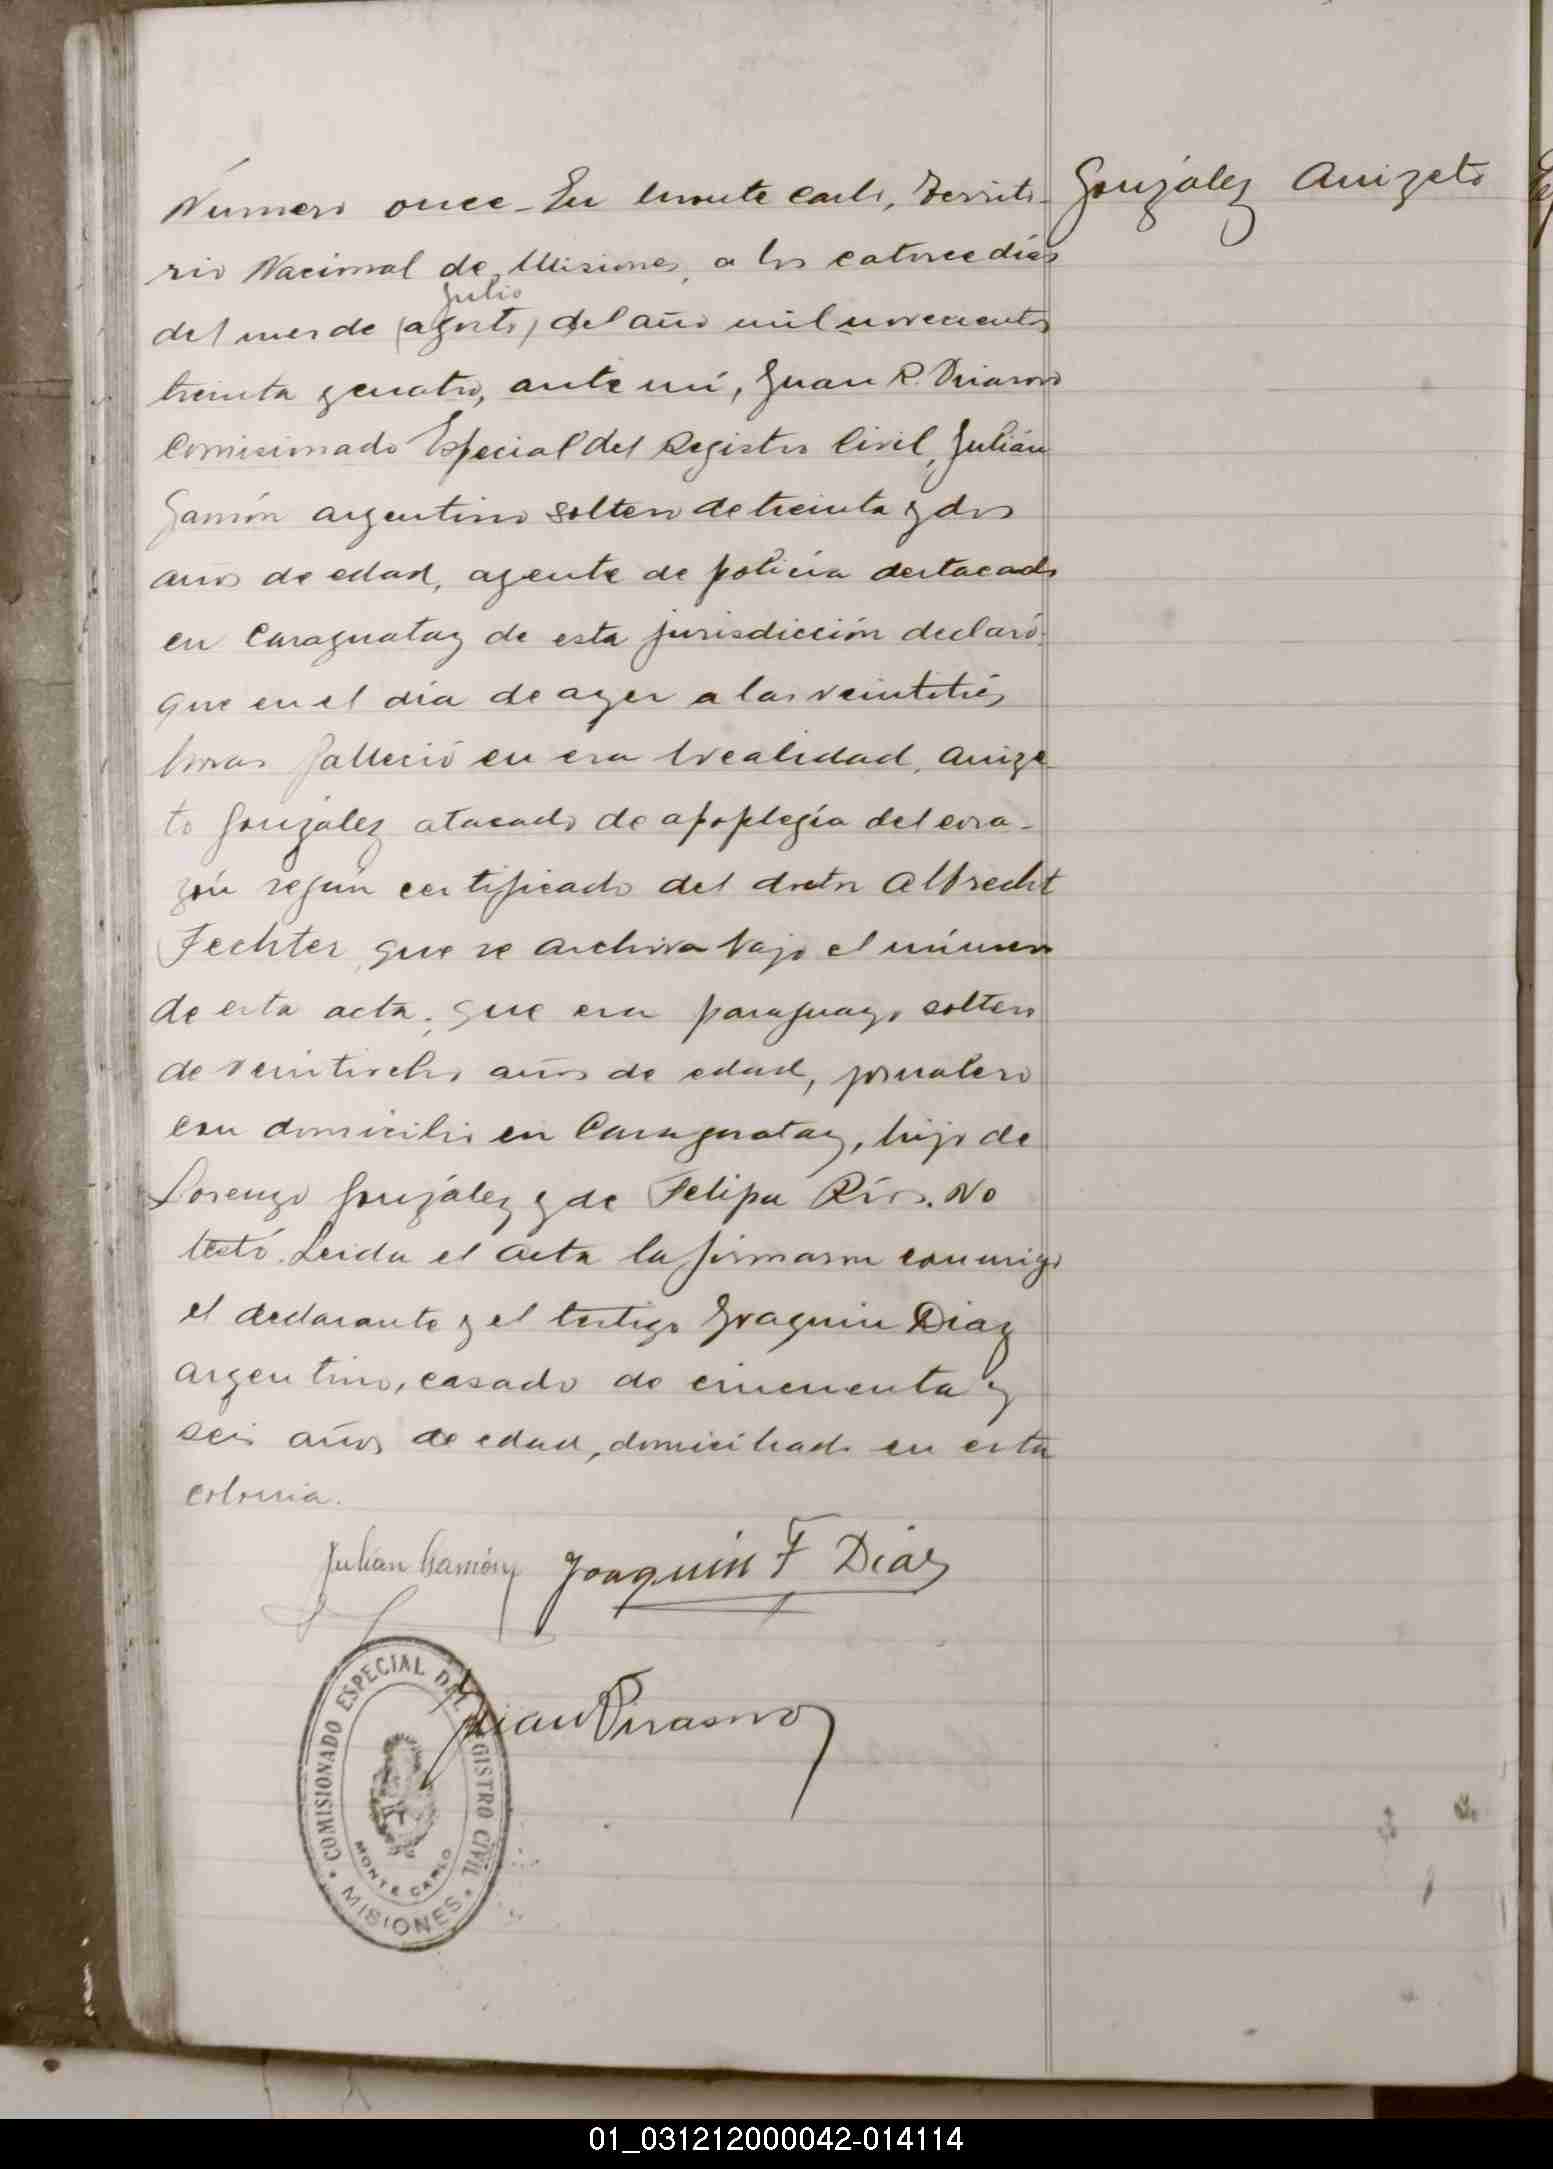 González Anizeto
Número once - En Monte Carlo, Territo-
rio Nacional de Misiones, a los catorce días
julio
del mes de (agosto) del año mil novecientos
treinta y cuatro, ante mí, Juan R. Pirasovo
Comisionado Especial del Registro Civil, Julián
Gamón argentino soltero de treinta y dos
años de edad, agente de policía destacado
en Caraguatay de esta jurisdicción declaró:
que en el día de ayer a las veintitrés
horas falleció en esa localidad, Anize-
to González atacado de apoplegía del cora-
zón según certificado del doctor Albrecht
Fechter, que se archiva bajo el número
de esta acta; que era paraguayo soltero
de veintiocho años de edad, jornalero
con domicilio en Caraguatay, hijo de
Lorenzo González y de Felipa Ríos. No
testó. Leida el acta la firmaron conmigo
el declarante y el testigo Joaquin Diaz
argentino, casado de cincuenta y
seis años de edad, domiciliado en esta
colonia.
Julián Gamón Joaquín F Díaz
Juan
COMISIONADO ESPECIAL DEL REGISTRO CIVIL
MONTE CARLO
MISIONES
01_031212000042-014114